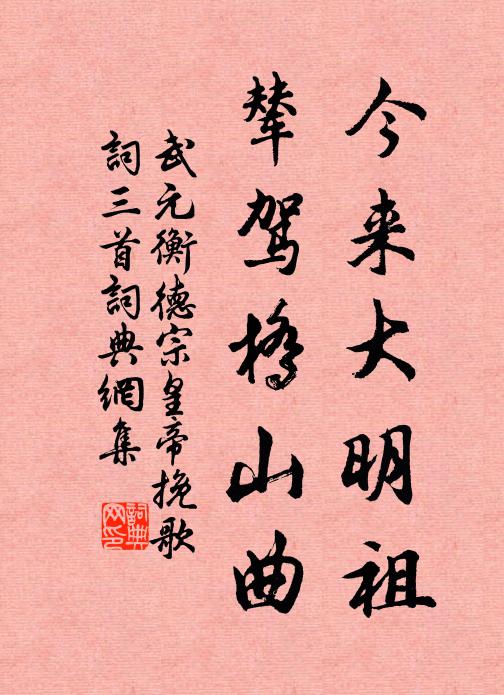 今来大明祖
辇驾桥山曲
武元衡德宗皇帝挽歌
詞三首詞典網集
詞典网印